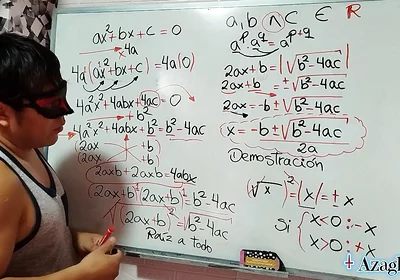 ax² + bx + c = 0
x4a
4a(ax² + bx + c) = 4a(0)
4a²x² + 4abx + 4ac = 0
+b²
4a²x² + 4abx + b² = b² - 4ac
(2ax +b)
(2ax +b)
2axb + 2axb = 4abx
(2ax+b)¹(2ax+b)¹ = b² - 4ac
√(2ax+b)² = √b² - 4ac
Raíz a todo
a, b ∧ c ∈ R
aᵖ.a^q = a^p+q
2ax + b = |√b² - 4ac|
2ax + b = ±√b² - 4ac
2ax = -b ± √b² - 4ac
x = -b ± √b² - 4ac
2a
Demostración
(√x)² = |x| = ± x
Si { x<0 : -x
x>0 : +x
+ Azag